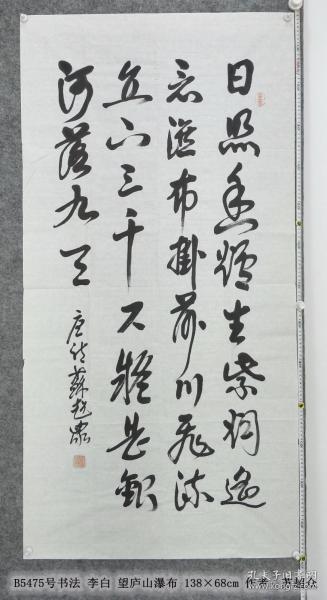 日照香爐生紫烟遥
看瀑布掛前川飛流
直下三千尺疑是銀
河落九天
唐诗蘇超衆
B5475号书法 李白 望庐山瀑布 138×68cm 作者：苏超众
孔夫子旧书网